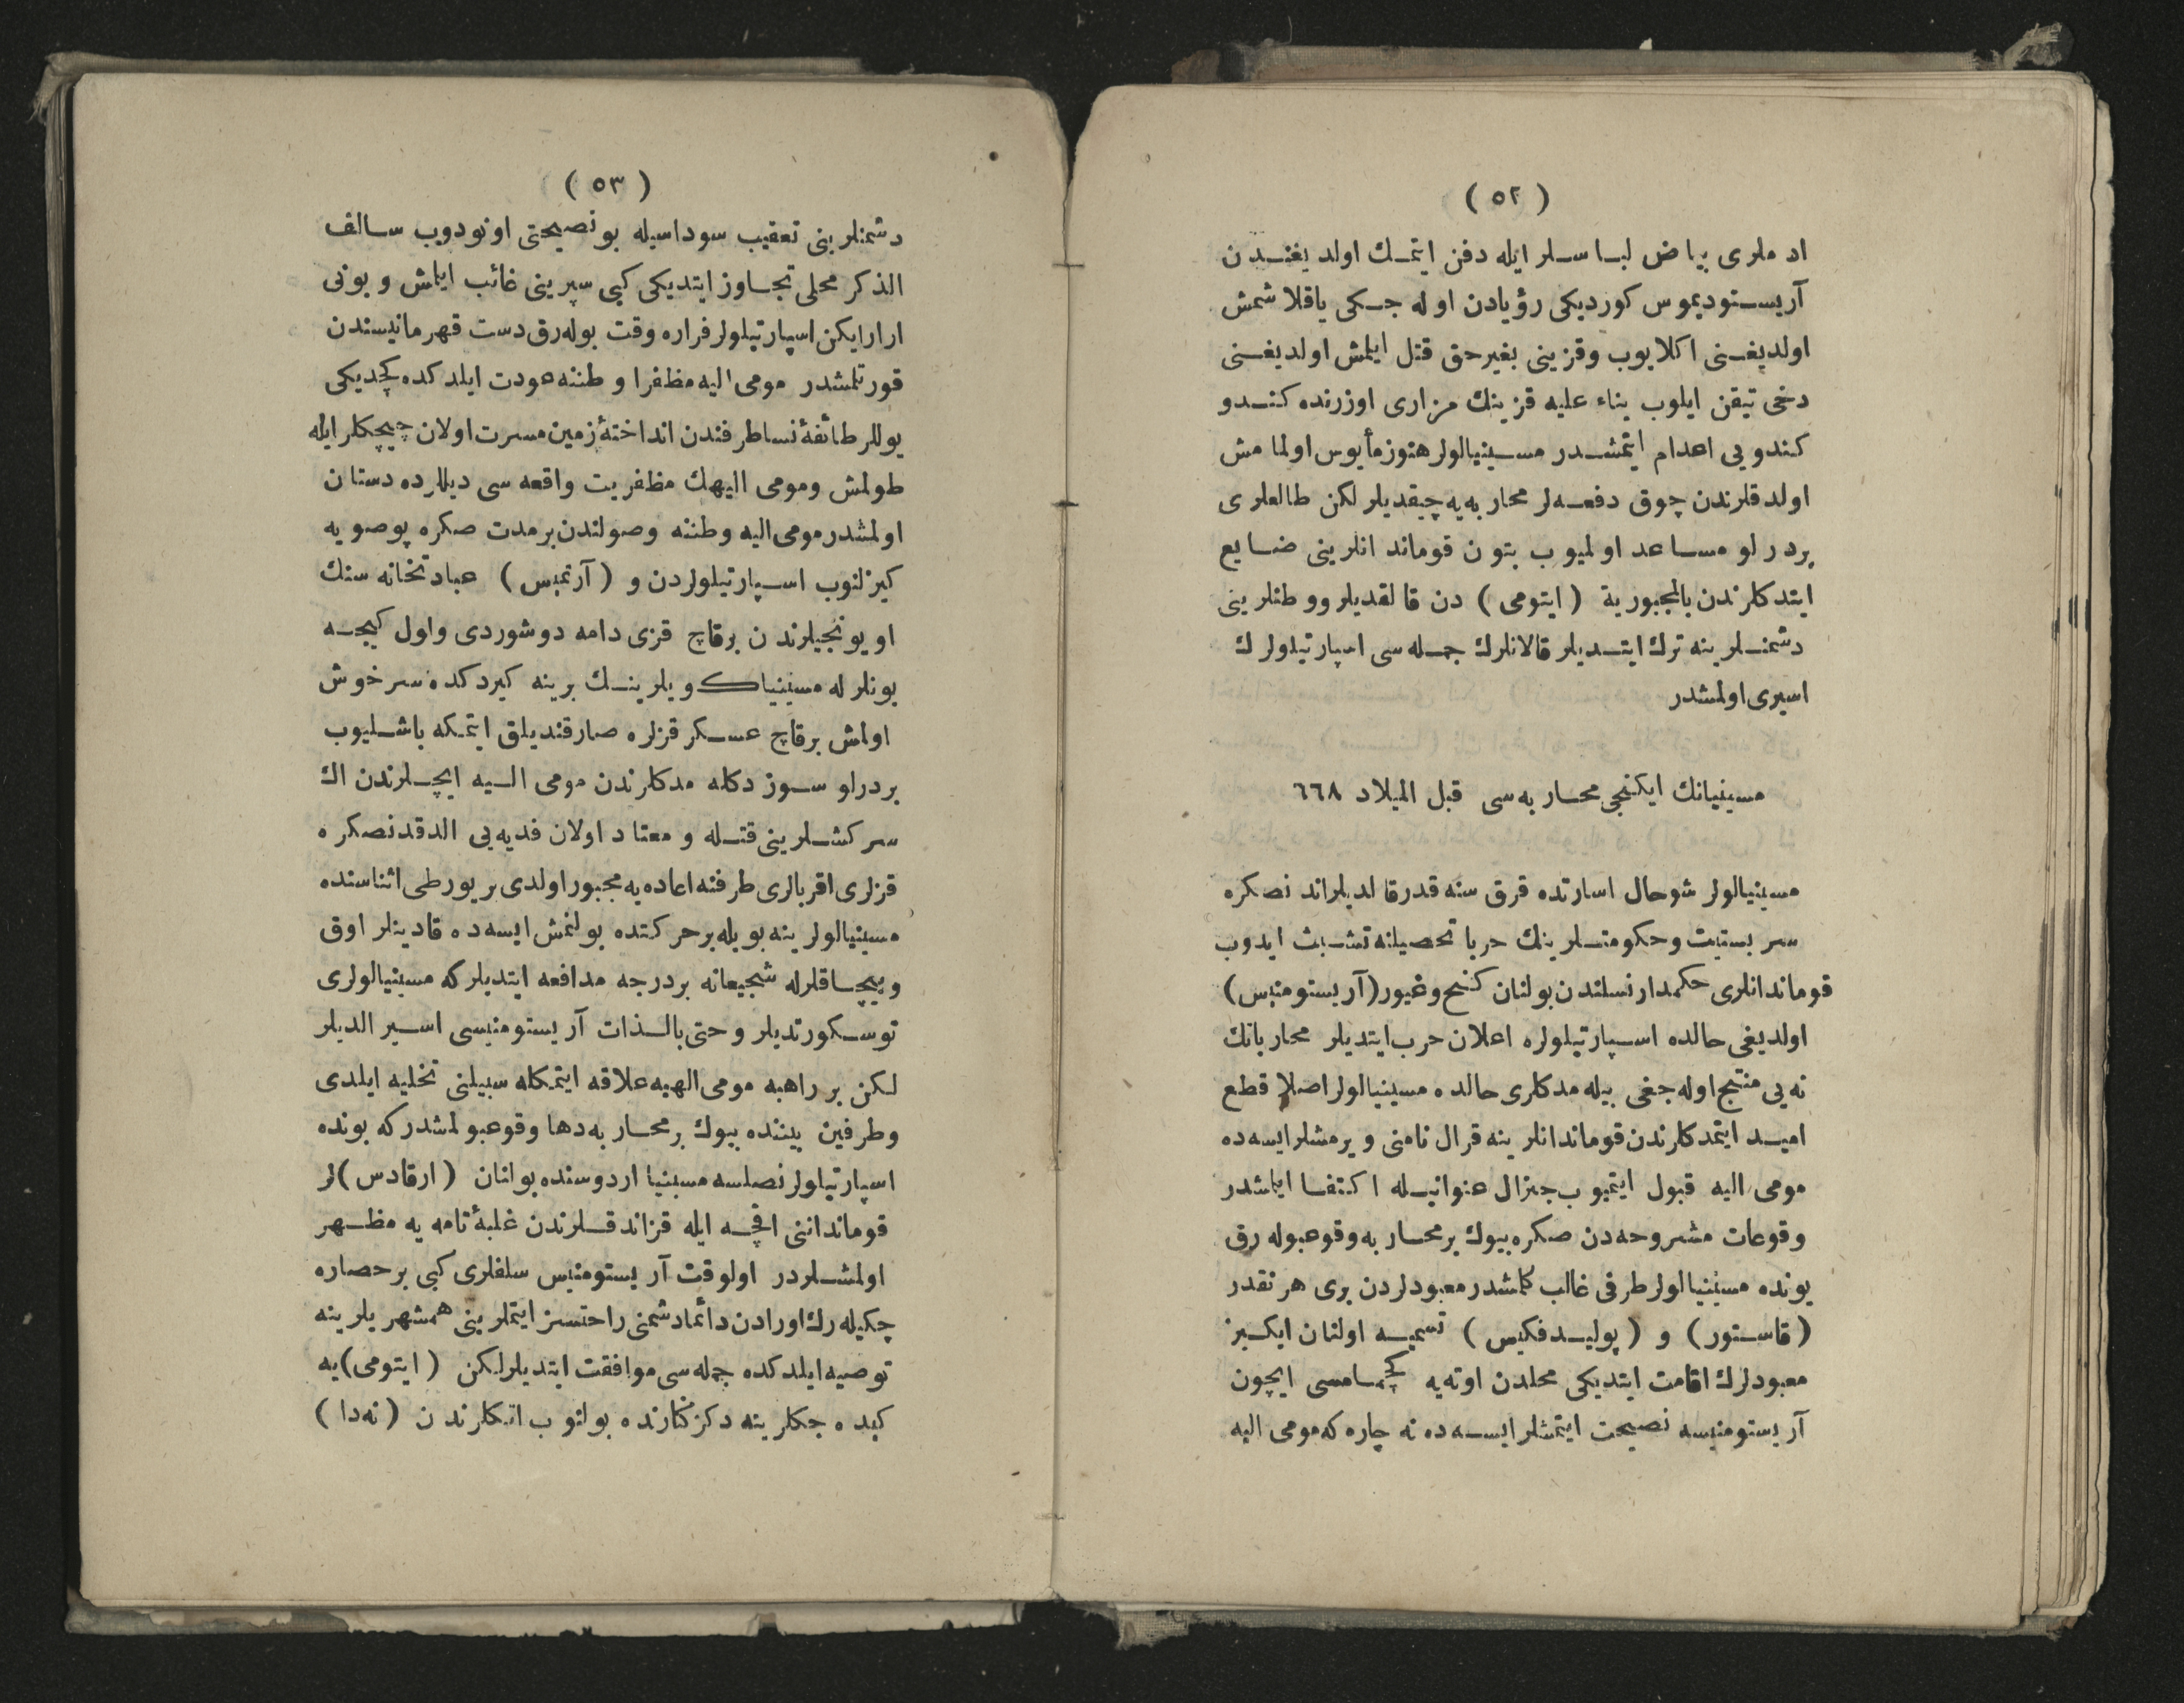 ( ٥٢ )
ادملری بیاض لباسلر ایله دفن ایتمك اولدیغندن
آریستودیموس كوردیكی رؤیادن اوله جكی یاقلاشمش
اولدیغنی اكلایوب وقزینی بغیرحق قتل ایلمش اولدیغنی
دخی تیقن ایلوب بناء علیه قزینك مزاری اوزرنده كندو
كندویی اعدام ایتمشدر مسینیالولر هنوز مأیوس اولمامش
اولدقلرندن چوق دفعه لر محاربه یه چیقدیلر لكن طالعلری
بردرلو مساعد اولمیوب بتون قوماندانلرینی ضایع
ایتدكلرندن بالمجبوریة (ایتومی) دن قالقدیلر ووطنلرینی
دشمنلرینه ترك ایتدیلر قالانلرك جمله سی اسپارتیلولرك
اسیری اولمشدر
مسینیانك ایكنجی محاربه سی قبل المیلاد ٦٦٨
مسینیالولر شوحال اسارتده قرق سنه قدر قالدیلر اندنصكره
سربستیت وحكومتلرینك حربا تحصیلنه تشبث ایدوب
قوماندانلری حكمدار نسلندن بولنان كنج وغیور (آریستومنیس)
اولدیغی حالده اسپارتیلولره اعلان حرب ایتدیلر محاربانك
نه یی منتج اوله جغی بیله مدكلری حالده مسینیالولر اصلا قطع
امید ایتمدكارندن قوماندانلرینه قرال نامنی ویرمشلر ایسه ده
مومی الیه قبول ایتمیوب جنرال عنوانیله اكتفا ایلمشدر
وقوعات مشروحه دن صكره بیوك برمحاربه وقوعبوله رق
بونده مسینیالولر طرفی غالب كلمشدر معبودلردن بری هر نقدر
(قاستور) و (پولیدفكیس) تسمیه اولنان ایكیز
معبودلرك اقامت ایتدیكی محلدن اوته یه كچمامسی ایچون
آریستومنیسه نصیحت ایتمشلر ایسه ده نه چاره كه مومی الیه
( ٥٣ )
دشمنلرینی تعقیب سوداسیله بو نصیحتی اونودوب سالف
الذكر محلی تجاوز ایتدیكی كبی سپرینی غائب ایلمش و بونی
ارارایكن اسپارتیلولر فراره وقت بوله رق دست قهرمانیسندن
قورتلمشدر مومی الیه مظفرا وطننه عودت ایلدكده كچدیكی
یوللر طائفهٔ نسا طرفندن انداختهٔ زمین مسرت اولان چیچكلر ایله
طولمش ومومی الیهك مظفریت واقعه سی دیللرده دستان
اولمشدر مومی الیه وطننه وصولندن برمدت صكره پوصویه
كیزلنوب اسپارتیلولردن و (آرتمیس) عبادتخانه سنك
اویونجیلرندن برقاچ قزی دامه دوشوردی واول كیجه
بونلرله مسینیا كویلرینك برینه كیردكده سرخوش
اولمش برقاچ عسكر قزلره صارقندیلق ایتمكه باشلیوب
بردرلو سوز دكله مدكلرندن مومی الیه ایچلرندن اك
سركشلرینی قتله و معتاد اولان فدیه یی الدقدنصكره
قزلری اقربالری طرفنه اعاده یه مجبور اولدی بر یورطی اثناسنده
مسینیالولر ینه بویله برحركتده بولنمش ایسه ده قادینلر اوق
وبیچاقلرله شجیعانه بردرجه مدافعه ایتدیلركه مسینیالولری
توسكورتدیلر وحتی بالذات آریستومنیسی اسیر الدیلر
لكن بر راهبه مومی الهیه علاقه ایتمكله سبیلنی تخلیه ایلدی
وطرفین بیننده بیوك برمحاربه دها وقوعبولمشدركه بونده
اسپارتیلولر نصلسه مسینیا اردوسنده بولنان (ارقادس) لر
قوماندانی اقچه ایله قزاندقلرندن غلبهٔ تامه یه مظهر
اولمشلردر اولوقت آریستومنیس سلفلری كبی برحصاره
چكیله رك اورادن دائما دشمنی راحتسز ایتملرینی همشهریلرینه
توصیه ایلدكده جمله سی موافقت ایتدیلر لكن (ایتومی) یه
كیده جكلرینه دكز كنارنده بولنوب (نه دا)